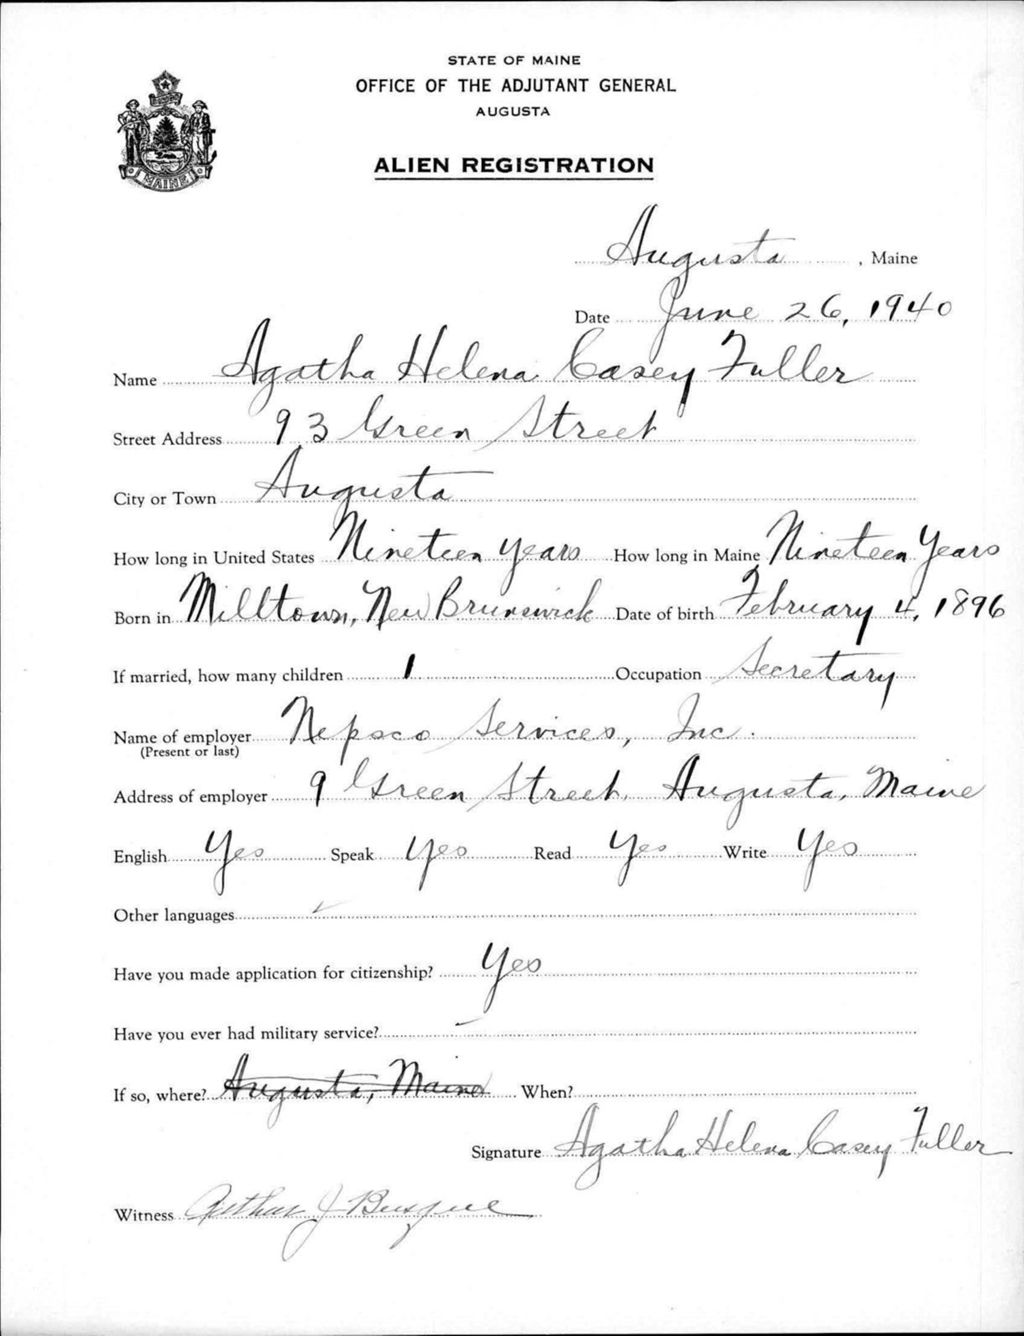 STATE OF MAINE
OFFICE OF THE ADJUTANT GENERAL
AUGUSTA
ALIEN REGISTRATION
MAINE
Augusta, Maine
Date June 26, 1940
Name Agatha Helena Casey Fuller
Street Address 93 Green Street
City or Town Augusta
How long in United States Nineteen years How long in Maine Nineteen Years
Born in Milltown, New Brunswick Date of birth February 4, 1896
If married, how many children 1 Occupation Secretary
Name of employer Nepsco Services, Inc.
(Present or last)
Address of employer 9 Green Street, Augusta, Maine
English Yes Speak Yes Read Yes Write Yes
Other languages
Have you made application for citizenship? Yes
Have you ever had military service?
If so, where? Augusta, Maine When?
Signature Agatha Helena Casey Fuller
Witness Arthur J